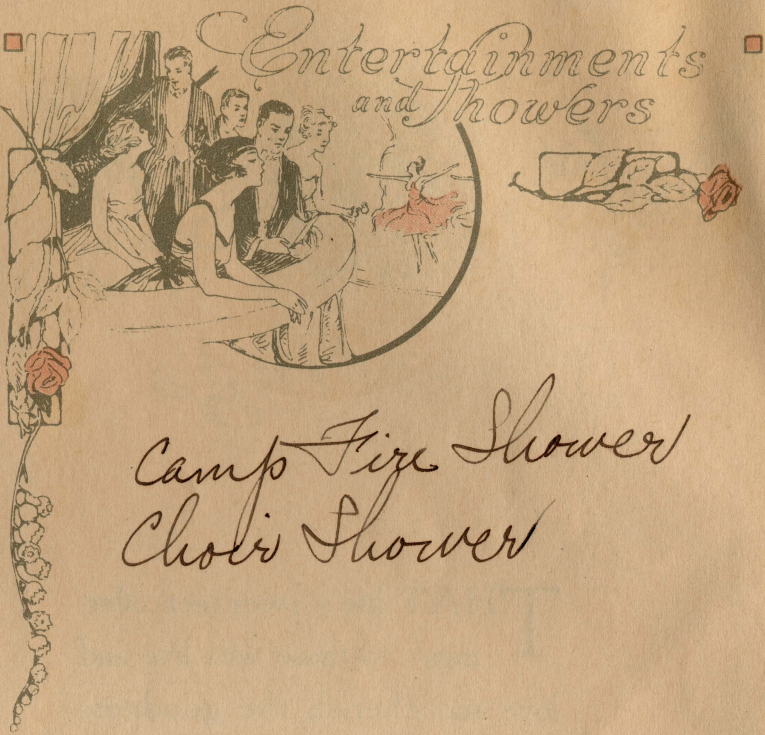 Entertainments
and Showers
Camp Fire Shower
Choir Shower